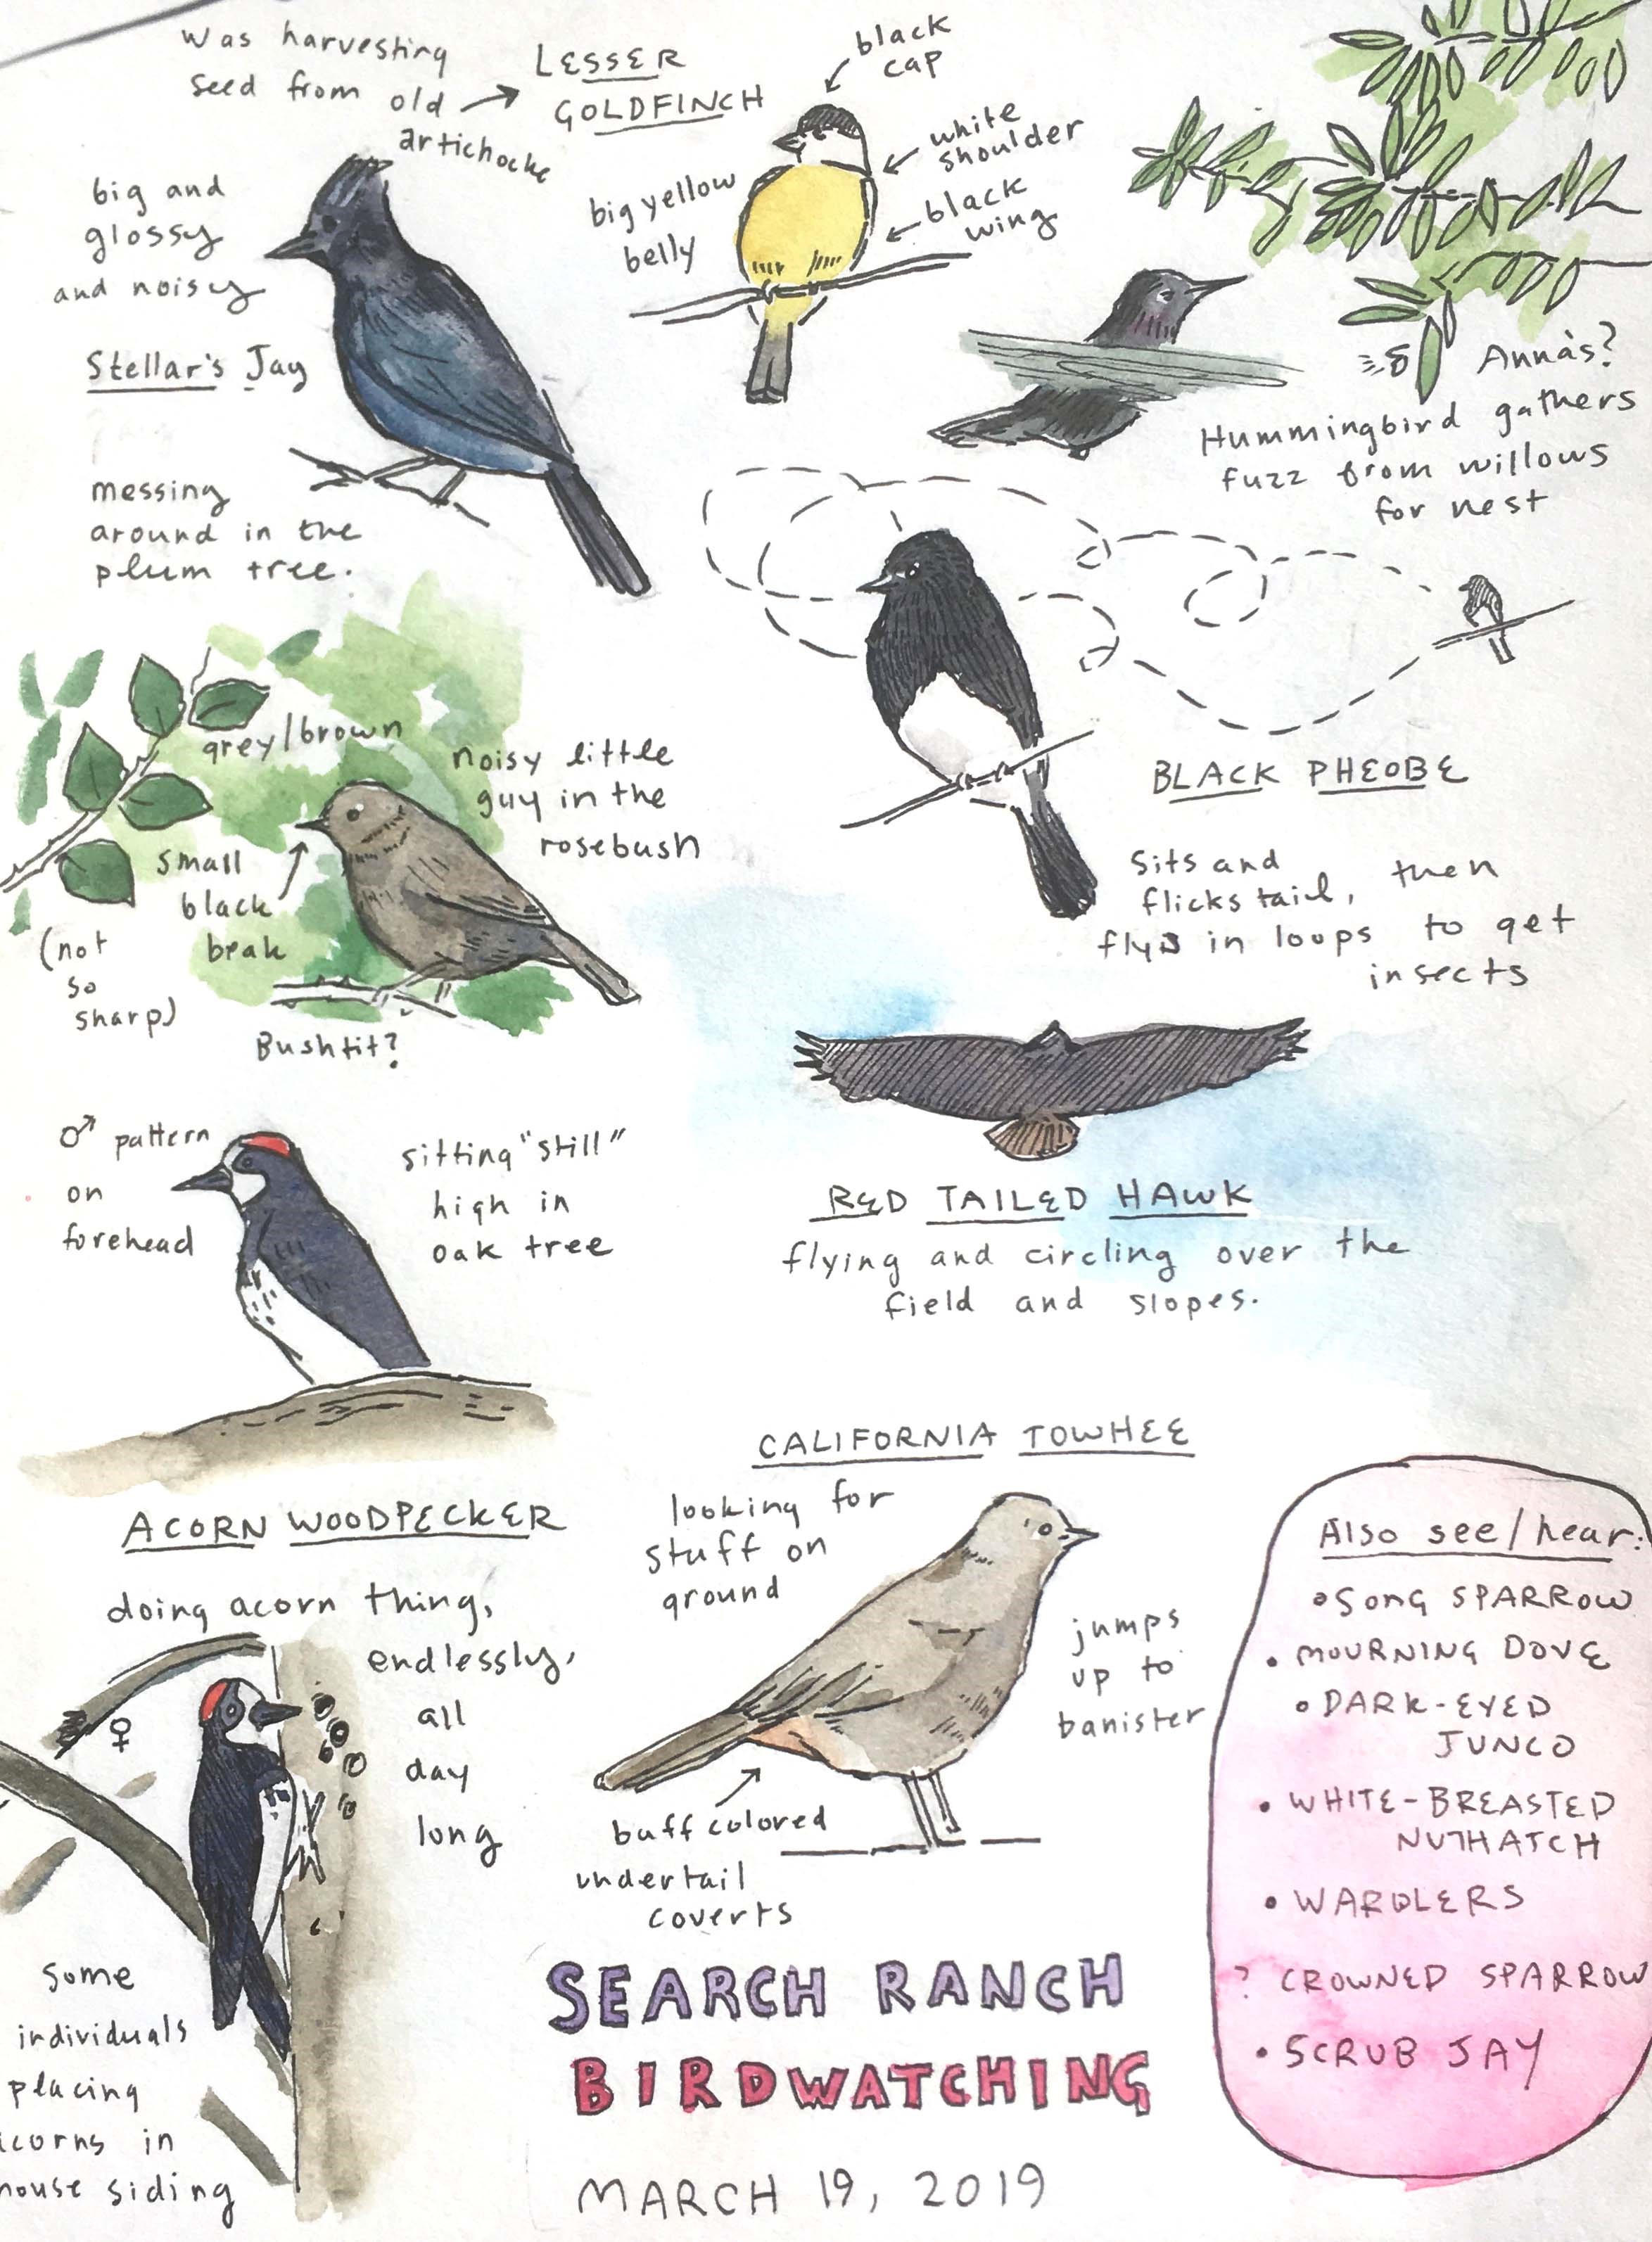 Was harvesting
seed from old
artichocke
LESSER
GOLDFINCH
black
cap
white
shoulder
black
wing
big yellow
belly
big and
glossy
and noisy
Stellar's Jay
messing
around in the
plum tree.
Anna's?
Hummingbird gathers
fuzz from willows
for nest
BLACK PHEOBE
Sits and
flicks tail, then
flys in loops to get
insects
grey/brown
noisy little
guy in the
rosebush
small
black
beak
(not
so
sharp)
Bushtit?
♂ pattern
on
forehead
sitting "still"
high in
oak tree
RED TAILED HAWK
flying and circling over the
field and slopes.
ACORN WOODPECKER
doing acorn thing,
endlessly,
all
day
long
♀
some
individuals
placing
acorns in
house siding
CALIFORNIA TOWHEE
looking for
stuff on
ground
jumps
up to
banister
buff colored
undertail
coverts
Also see/hear:
• SONG SPARROW
• MOURNING DOVE
• DARK-EYED
JUNCO
• WHITE-BREASTED
NUTHATCH
• WARBLERS
? CROWNED SPARROW
• SCRUB JAY
SEARCH RANCH
BIRDWATCHING
MARCH 19, 2019